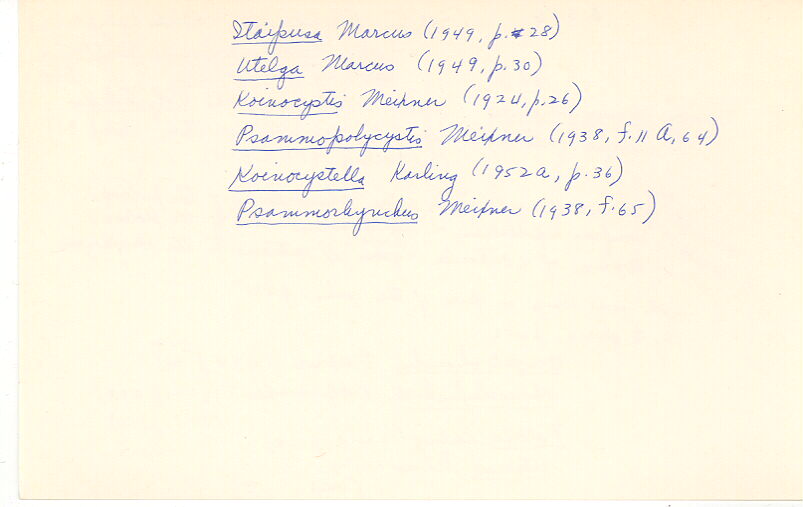 Itaipusa Marcus (1949, p. 28)
Utelga Marcus (1949, p. 30)
Koinocystis Meixner (1924, p. 26)
Psammopolycystis Meixner (1938, f. 11 A, 64)
Koinocystella Karling (1952a, p. 36)
Psammorhynchus Meixner (1938, f. 65)